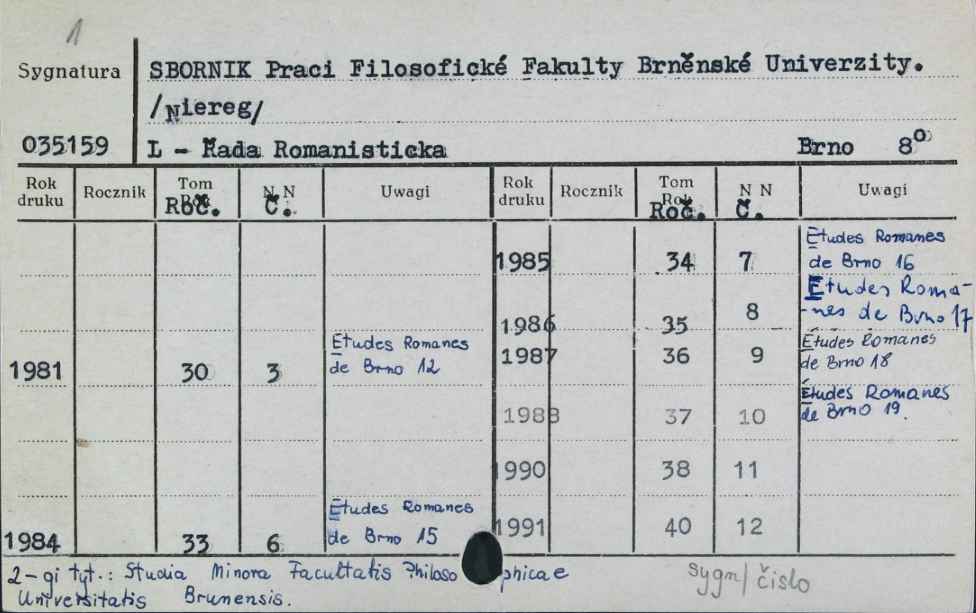 1
Sygnatura
SBORNIK Praci Filosofické Fakulty Brněnské Univerzity.
/Niereg/
035159
L - Řada Romanisticka Brno 8°
Rok druku Rocznik Tom Rok Roč. N N Č. Uwagi Rok druku Rocznik Tom Rok Roč. N N Č. Uwagi
1985 34 7 Études Romanes
de Brno 16
1986 35 8 Études Roma-
-nes de Brno 17
1981 30 3 Études Romanes
de Brno 12
1987 36 9 Études Romanes
de Brno 18
1988 37 10 Études Romanes
de Brno 19.
1990 38 11
1984 33 6 Études Romanes
de Brno 15
1991 40 12
2-gi tyt.: Studia Minora Facultatis Philoso phicae
Universitatis Brunensis.
sygn/číslo